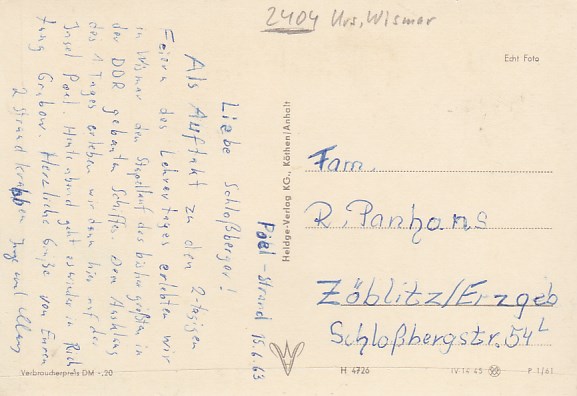 2404 Krs. Wismar
Echt Foto
Poel-Strand 15.6.63
Liebe Schloßberger!
Als Auftakt zu den 2-tägigen
Feiern des Lehrertages erlebten wir
in Wismar den Stapellauf des bisher größten in
der DDR gebauten Schiffes. Den Ausklang
des 1. Tages erleben wir dann hier auf der
Insel Poel. Heute abend geht es wieder in Rich
tung Grabow. Herzliche Grüße von Euren
2 Strandkrabben
Heldge-Verlag KG., Köthen/Anhalt
Fam.
R. Panhans
Zöblitz/Erzgeb
Schloßbergstr. 54
Verbraucherpreis DM -,20
H 4726
IV-14-45
P 1/61